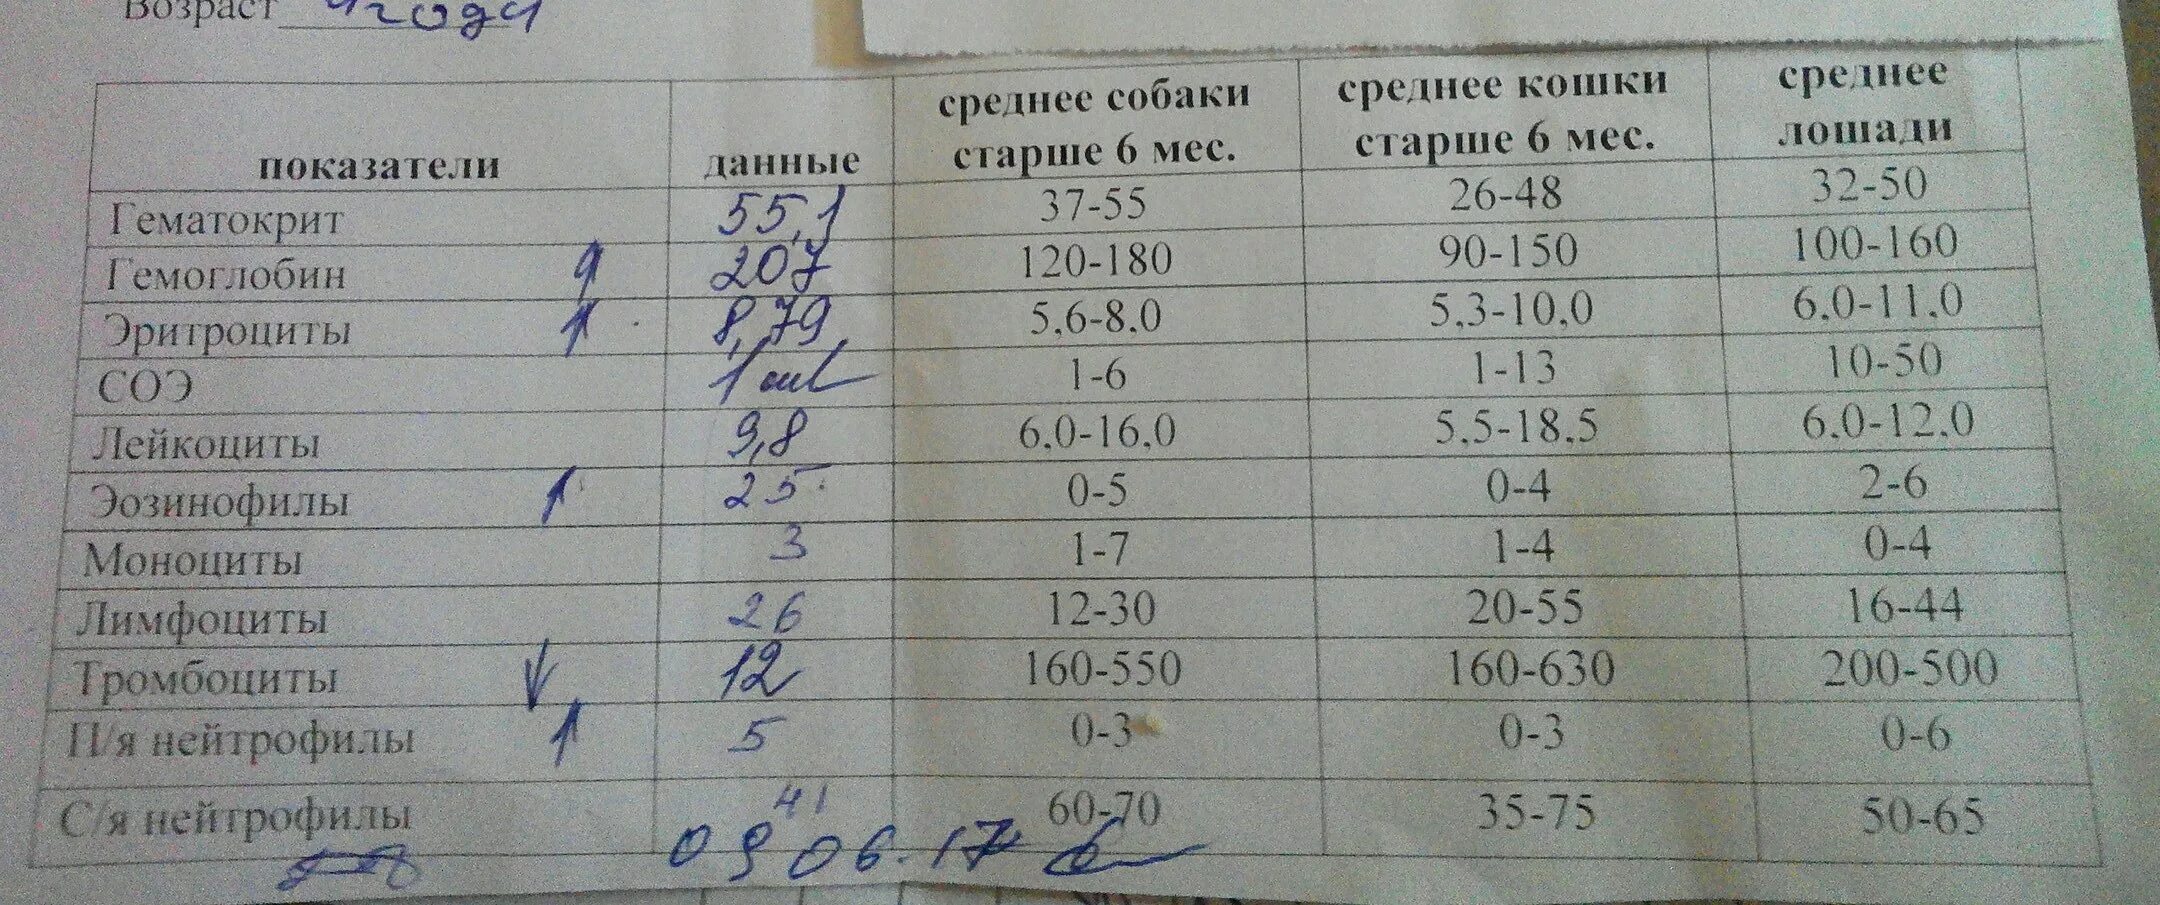 Возраст 4 года
показатели данные среднее собаки старше 6 мес. среднее кошки старше 6 мес. среднее лошади
Гематокрит 55,1 37-55 26-48 32-50
Гемоглобин ↑ 207 120-180 90-150 100-160
Эритроциты ↑ 8,79 5,6-8.0 5,3-10,0 6.0-11.0
СОЭ 1 1-6 1-13 10-50
Лейкоциты 9,8 6.0-16.0 5.5-18.5 6.0-12.0
Эозинофилы ↑ 25 0-5 0-4 2-6
Моноциты 3 1-7 1-4 0-4
Лимфоциты 26 12-30 20-55 16-44
Тромбоциты ↓ 12 160-550 160-630 200-500
П/я нейтрофилы ↑ 5 0-3 0-3 0-6
С/я нейтрофилы 41 60-70 35-75 50-65
09 06.17